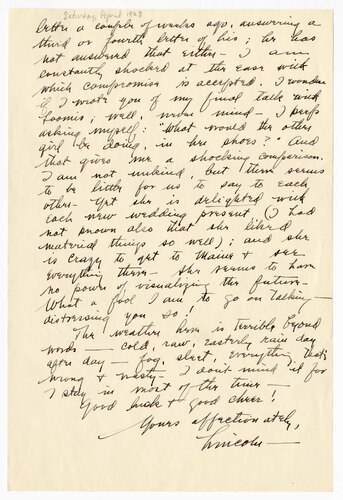 Saturday, April, 1928
letter a couple of weeks ago, answering a
third or fourth letter of his; he has
not answered that either - I am
constantly shocked at the ease with
which compromise is accepted. I wonder
if I wrote you of my final talk with
Loomis; well, never mind - I keep
asking myself: "What would the other
girl be doing, in her shoes?" And
that gives me a shocking comparison.
I am not unkind, but there seems
to be little for us to say to each
other - Yet she is delighted with
each new wedding present (I had
not known also that she liked
material things so well); and she
is crazy to get to & see
everything there - she seems to have
no power of visualizing the future -
What a fool I am to go on talking -
distressing you so!
The weather here is terrible beyond
words - cold, raw, easterly rain day
after day - fog, sleet, everything that's
wrong & nasty - I don't mind it for
I stay in most of the time -
Good luck & good cheer!
Yours affectionately,
Lincoln -